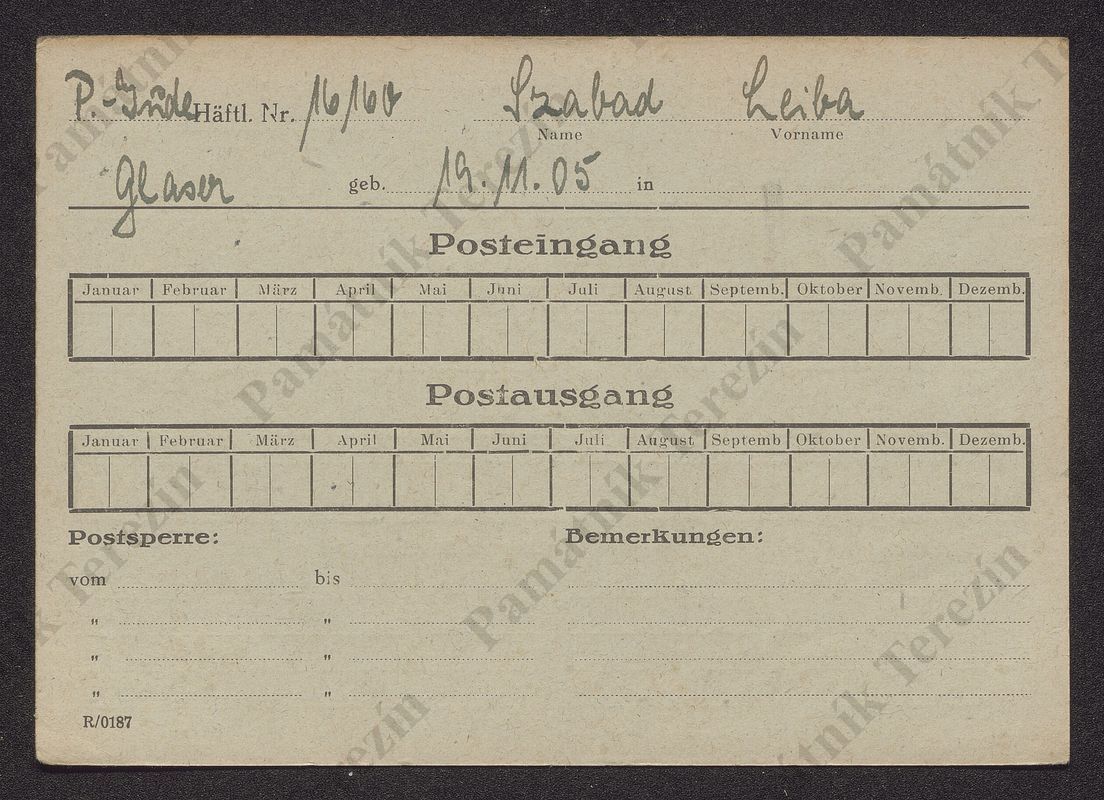 P.-Jude Häftl. Nr. 16160 Szabad Leiba
Name Vorname
Glaser geb. 19.11.05 in
Posteingang
Januar Februar März April Mai Juni Juli August Septemb. Oktober Novemb. Dezemb.
Postausgang
Januar Februar März April Mai Juni Juli August Septemb Oktober Novemb. Dezemb.
Postsperre: Bemerkungen:
vom bis
" "
" "
" "
R/0187
Památník Terezín